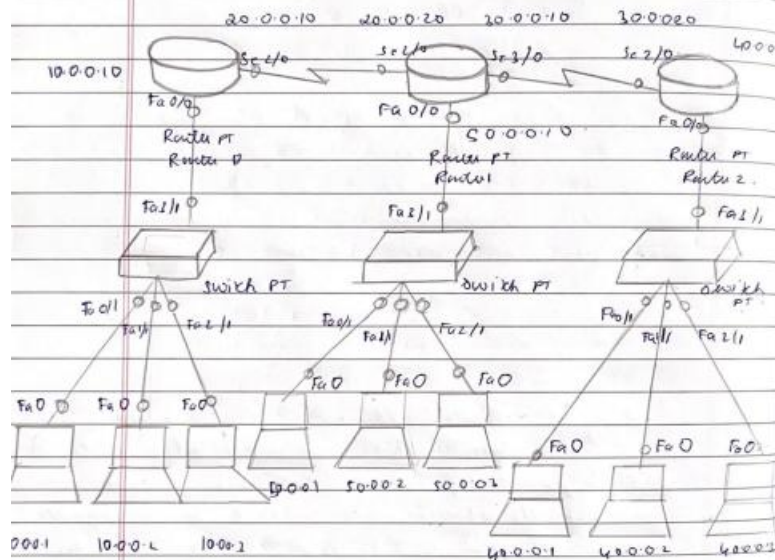 20.0.0.10 20.0.0.20 30.0.0.10 30.0.020
Se2/0 Se2/0 Se3/0 Se2/0 40.0.0
10.0.0.10
Fa0/0 Fa0/0 Fa0/0
50.0.0.10
Router PT Router PT Router PT
Router 0 Router1 Router 2.
Fa3/1 Fa3/1 Fa3/1
Switch PT Switch PT Switch PT
Fa0/1 Fa1/1 Fa2/1 Fa0/1 Fa1/1 Fa2/1 Fa0/1 Fa1/1 Fa2/1
Fa0 Fa0 Fa0 Fa0 Fa0 Fa0
Fa0 Fa0 Fa0
50.0.0.1 50.0.0.2 50.0.0.3
0.0.0.1 10.0.0.2 10.0.0.3 40.0.0.1 40.0.0.2 40.0.0.3